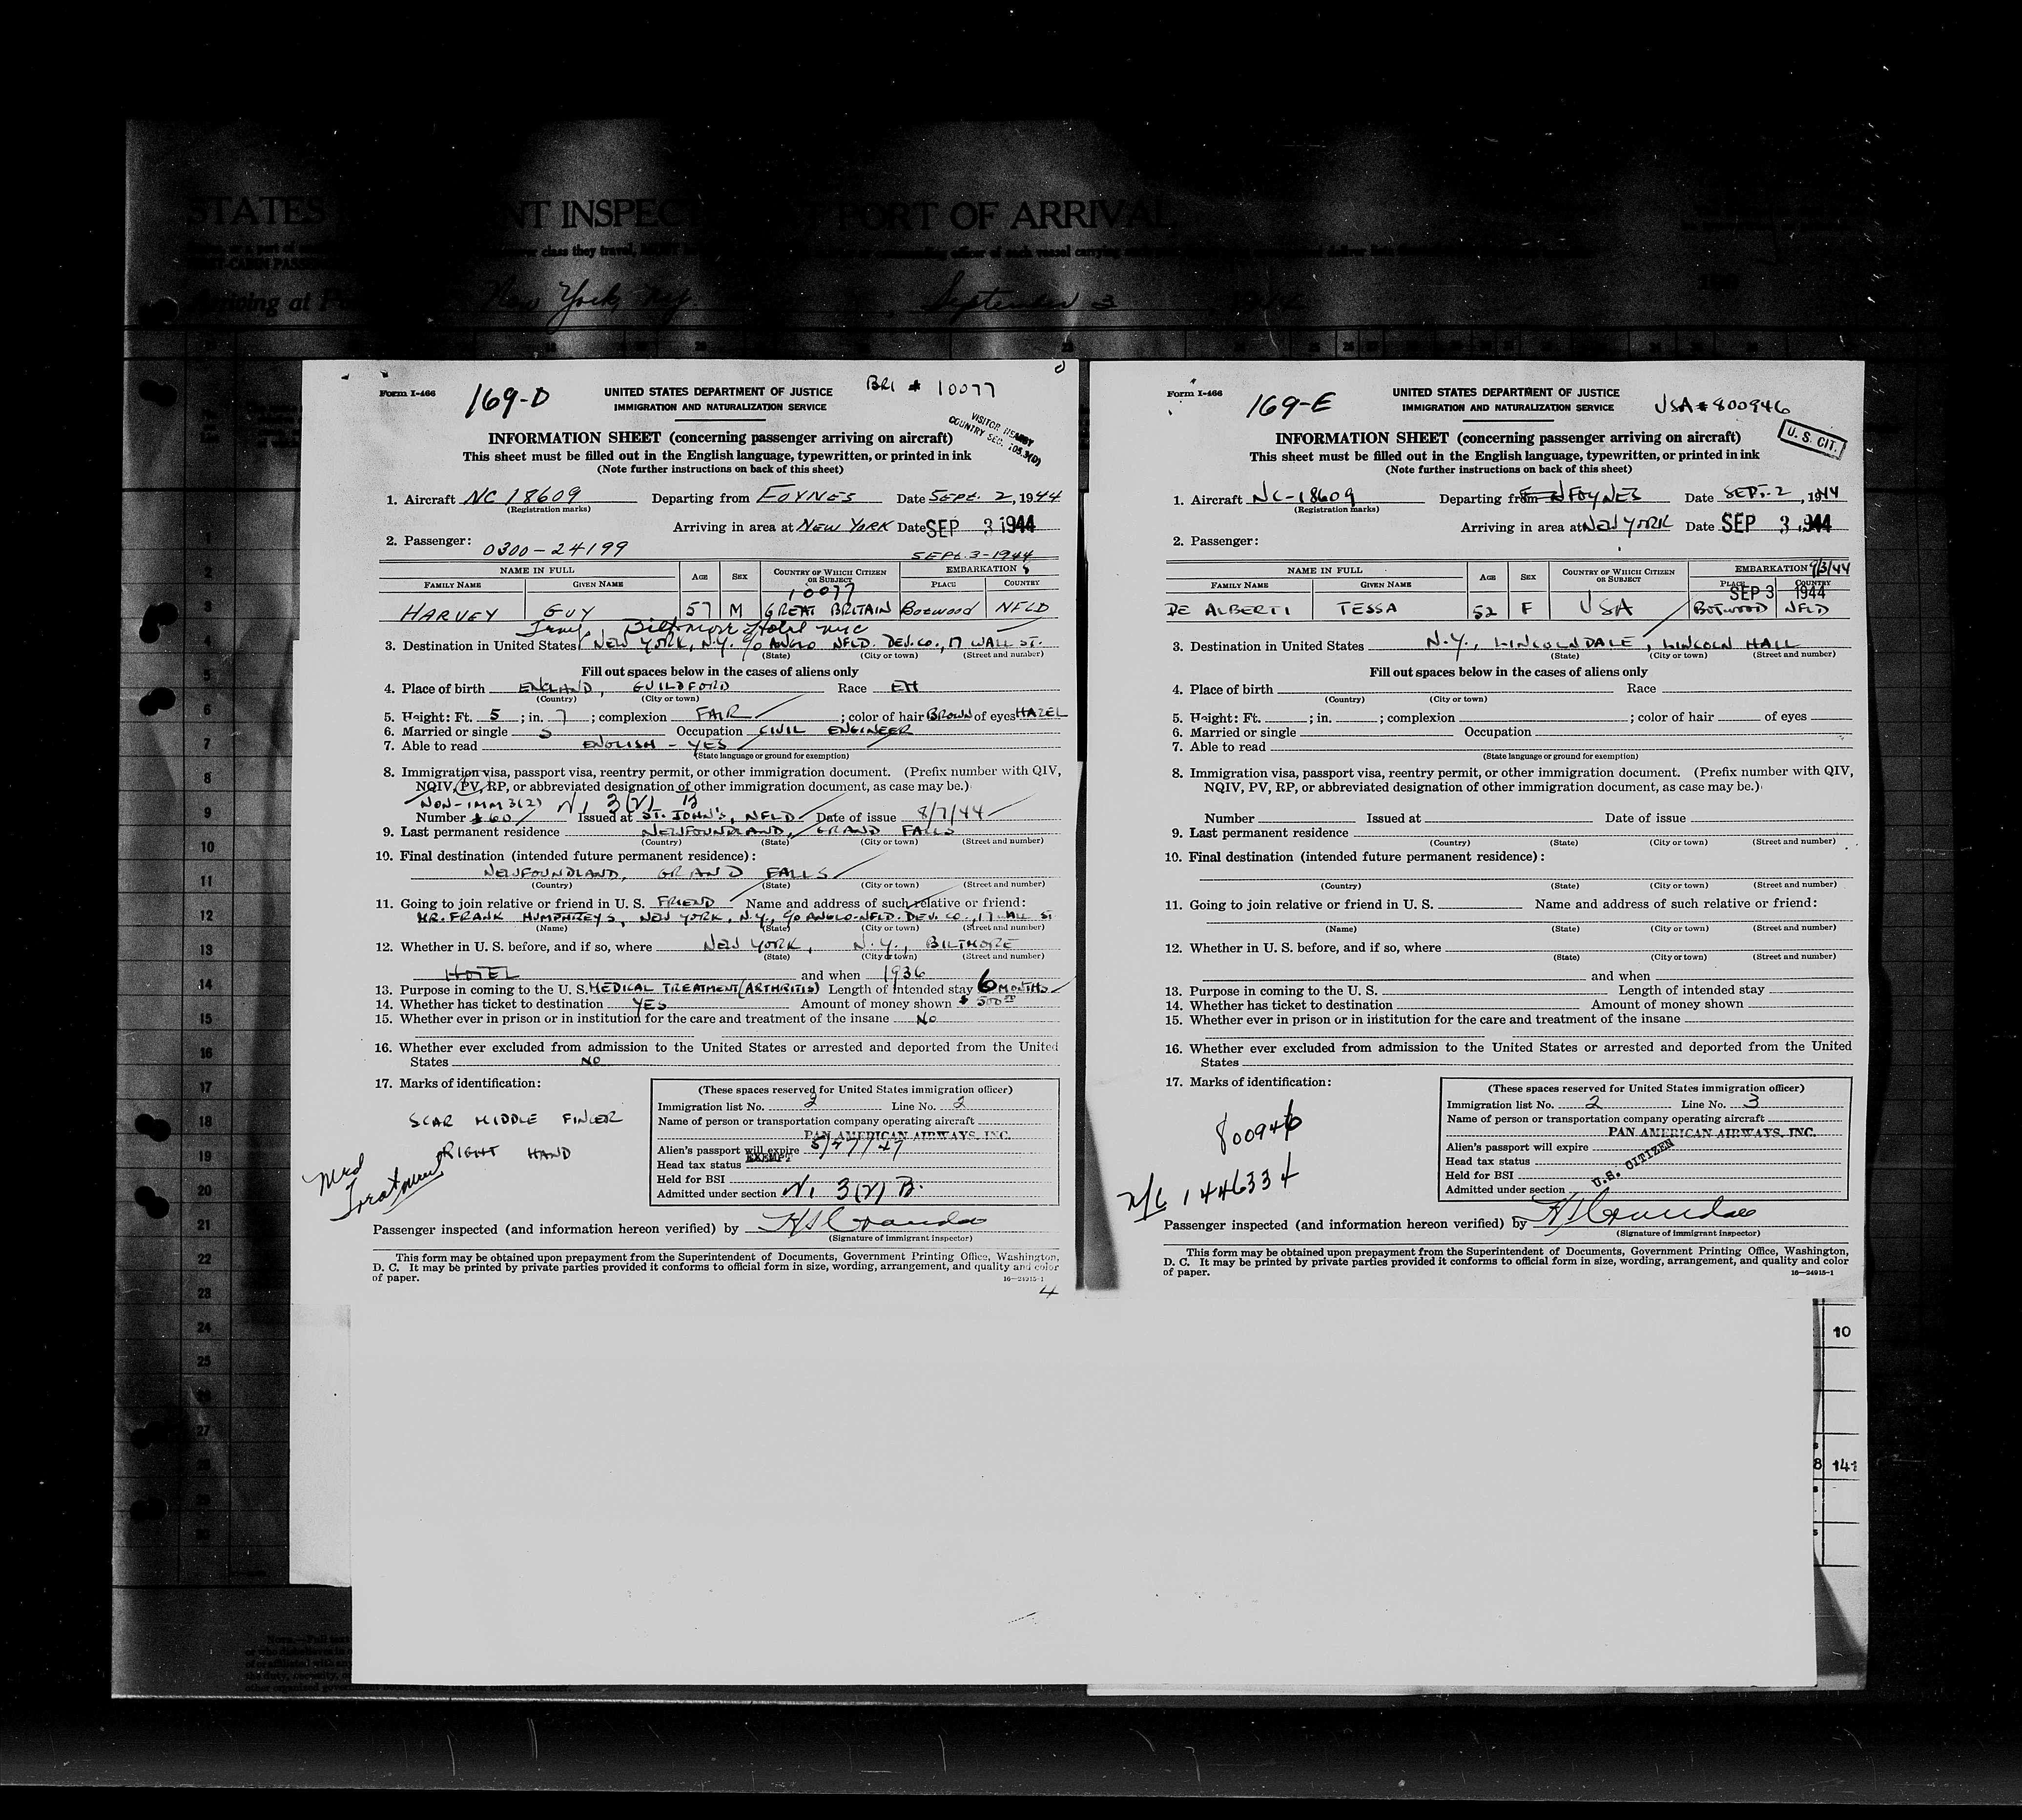 PORT OF ARRIVAL
Arriving at
New York, N.Y.
September 3
Form I-466
169-D
UNITED STATES DEPARTMENT OF JUSTICE
IMMIGRATION AND NATURALIZATION SERVICE
BRI # 10077
VISITOR NEARBY
COUNTRY SEC.
INFORMATION SHEET (concerning passenger arriving on aircraft)
This sheet must be filled out in the English language, typewritten, or printed in ink
(Note further instructions on back of this sheet)
1. Aircraft NC 18609 Departing from FOYNES Date SEPT. 2, 1944
(Registration marks)
Arriving in area at NEW YORK Date SEP 3 1944
2. Passenger: 0300-24199
SEPT. 3-1944
NAME IN FULL AGE SEX COUNTRY OF WHICH CITIZEN OR SUBJECT EMBARKATION
FAMILY NAME GIVEN NAME PLACE COUNTRY
10077
HARVEY GUY 57 M GREAT BRITAIN Botwood NFLD
Biltmore Hotel NYC
3. Destination in United States NEW YORK, N.Y. c/o ANGLO NFLD. DEV. CO., 17 WALL ST.
(State) (City or town) (Street and number)
Fill out spaces below in the cases of aliens only
4. Place of birth ENGLAND, GUILDFORD Race
(Country) (City or town)
5. Height: Ft. 5; in. 7; complexion FAIR; color of hair BROWN of eyes HAZEL
6. Married or single S Occupation CIVIL ENGINEER
7. Able to read ENGLISH - YES
(State language or ground for exemption)
8. Immigration visa, passport visa, reentry permit, or other immigration document. (Prefix number with QIV,
NQIV, PV, RP, or abbreviated designation of other immigration document, as case may be.)
NON-IMM 3(2) 3(2) B
Number #60 Issued at ST. JOHN'S, NFLD. Date of issue 8/7/44
9. Last permanent residence NEWFOUNDLAND, GRAND FALLS
(Country) (State) (City or town) (Street and number)
10. Final destination (intended future permanent residence):
NEWFOUNDLAND, GRAND FALLS
(Country) (State) (City or town) (Street and number)
11. Going to join relative or friend in U. S. FRIEND Name and address of such relative or friend:
MR. FRANK HUMPHREYS, NEW YORK, N.Y., c/o ANGLO-NFLD. DEV. CO., 17 WALL ST
(Name) (State) (City or town) (Street and number)
12. Whether in U. S. before, and if so, where NEW YORK, N.Y., BILTMORE
(State) (City or town) (Street and number)
HOTEL and when 1936
13. Purpose in coming to the U. S. MEDICAL TREATMENT (ARTHRITIS) Length of intended stay 6 MONTHS
14. Whether has ticket to destination YES Amount of money shown $ 500
15. Whether ever in prison or in institution for the care and treatment of the insane NO
16. Whether ever excluded from admission to the United States or arrested and deported from the United
States NO
17. Marks of identification:
SCAR MIDDLE FINGER
RIGHT HAND
Med
Treatment
(These spaces reserved for United States immigration officer)
Immigration list No. 2 Line No. 2
Name of person or transportation company operating aircraft
PAN AMERICAN AIRWAYS, INC.
Alien's passport will expire
Head tax status EXEMPT
Held for BSI
Admitted under section 3(2) B.
Passenger inspected (and information hereon verified) by
(Signature of immigrant inspector)
This form may be obtained upon prepayment from the Superintendent of Documents, Government Printing Office, Washington,
D. C. It may be printed by private parties provided it conforms to official form in size, wording, arrangement, and quality and color
of paper.
16-24915-1
4
Form I-466
169-E
UNITED STATES DEPARTMENT OF JUSTICE
IMMIGRATION AND NATURALIZATION SERVICE
USA # 800946
U. S. CIT.
INFORMATION SHEET (concerning passenger arriving on aircraft)
This sheet must be filled out in the English language, typewritten, or printed in ink
(Note further instructions on back of this sheet)
1. Aircraft NC-18609 Departing from FOYNES Date SEPT. 2, 1944
(Registration marks)
Arriving in area at NEW YORK Date SEP 3 1944
2. Passenger:
NAME IN FULL AGE SEX COUNTRY OF WHICH CITIZEN OR SUBJECT EMBARKATION 9/3/44
FAMILY NAME GIVEN NAME PLACE COUNTRY
SEP 3 1944
DE ALBERTI TESSA 52 F USA BOTWOOD NFLD
3. Destination in United States N.Y., LINCOLNDALE, LINCOLN HALL
(State) (City or town) (Street and number)
Fill out spaces below in the cases of aliens only
4. Place of birth Race
(Country) (City or town)
5. Height: Ft. ; in. ; complexion ; color of hair of eyes
6. Married or single Occupation
7. Able to read
(State language or ground for exemption)
8. Immigration visa, passport visa, reentry permit, or other immigration document. (Prefix number with QIV,
NQIV, PV, RP, or abbreviated designation of other immigration document, as case may be.)
Number Issued at Date of issue
9. Last permanent residence
(Country) (State) (City or town) (Street and number)
10. Final destination (intended future permanent residence):
(Country) (State) (City or town) (Street and number)
11. Going to join relative or friend in U. S. Name and address of such relative or friend:
(Name) (State) (City or town) (Street and number)
12. Whether in U. S. before, and if so, where
(State) (City or town) (Street and number)
and when
13. Purpose in coming to the U. S. Length of intended stay
14. Whether has ticket to destination Amount of money shown
15. Whether ever in prison or in institution for the care and treatment of the insane
16. Whether ever excluded from admission to the United States or arrested and deported from the United
States
17. Marks of identification:
800946
1446334
(These spaces reserved for United States immigration officer)
Immigration list No. 2 Line No. 3
Name of person or transportation company operating aircraft
PAN AMERICAN AIRWAYS, INC.
Alien's passport will expire
Head tax status
Held for BSI
Admitted under section
U.S. CITIZEN
Passenger inspected (and information hereon verified) by
(Signature of immigrant inspector)
This form may be obtained upon prepayment from the Superintendent of Documents, Government Printing Office, Washington,
D. C. It may be printed by private parties provided it conforms to official form in size, wording, arrangement, and quality and color
of paper.
16-24915-1
10
141